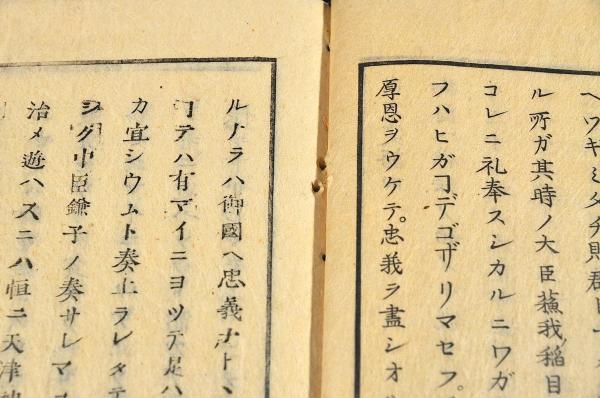 ヘワキミタチ則君臣
ル所ガ其時ノ大臣蘓我ノ稲目
コレニ礼奉スシカルニワガ
フハヒガヿデゴザリマセフ。
厚恩ヲウケテ。忠義ヲ盡シオ
ルナラハ御國ヘ忠義
ヿテハ有マイニヨツテ足ハ
カ宜シウムト奏上ラレタテ
中臣鎌子ノ奏サレマ
治メ遊ハスニハ恒ニ天津神